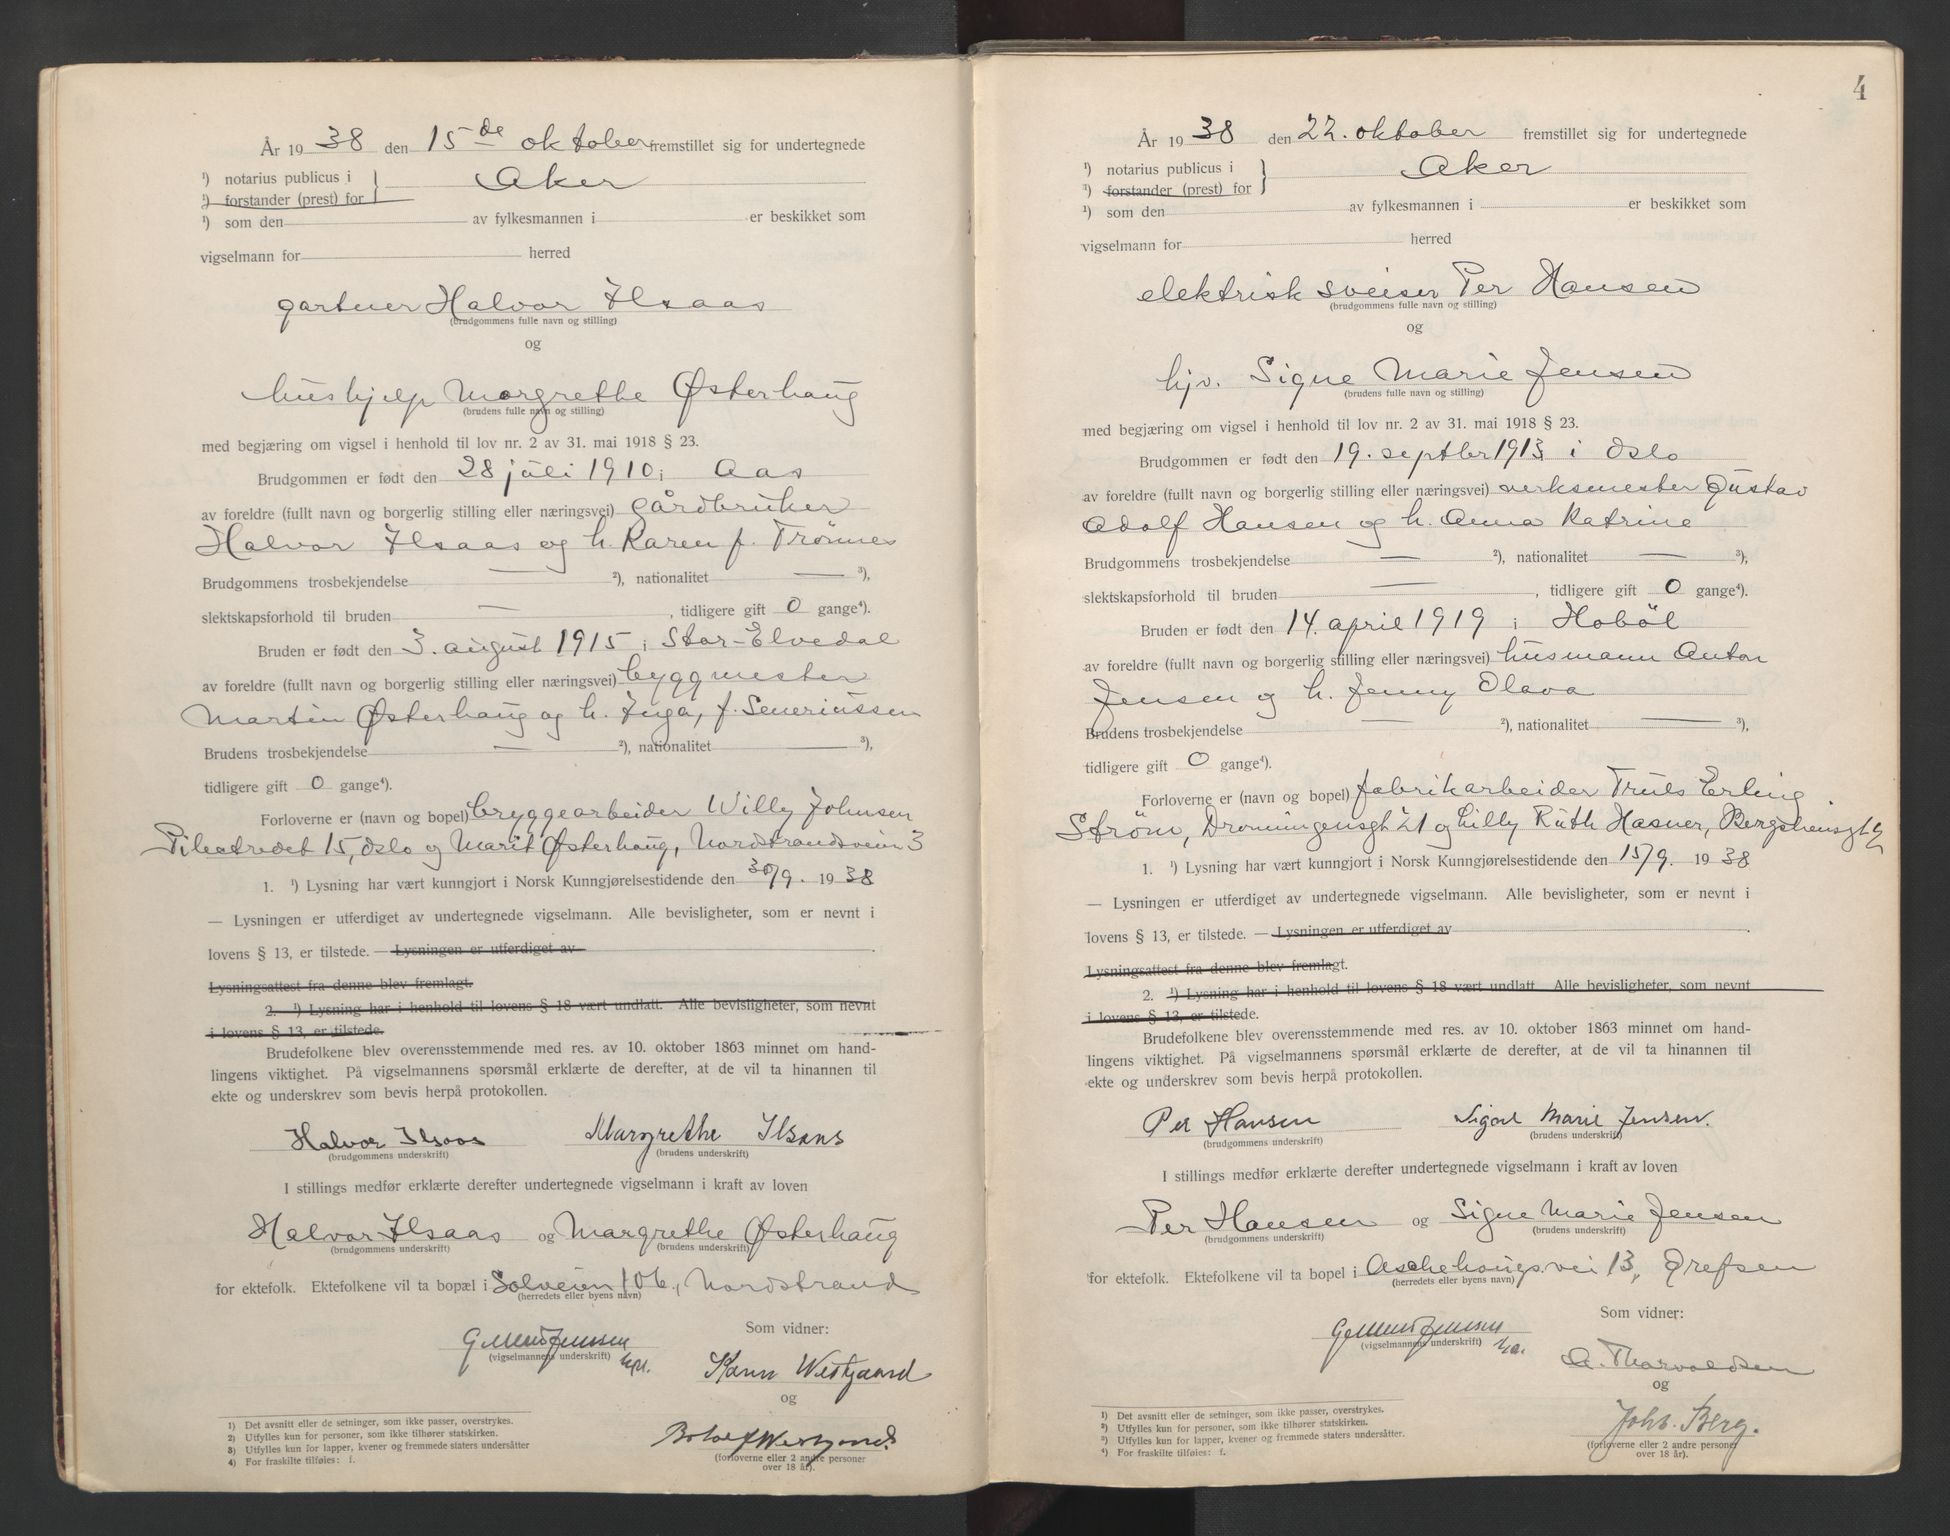 År 1938 den 15de oktober fremstillet sig for undertegnede
¹) notarius publicus i } Aker
¹) forstander (prest) for
¹) som den av fylkesmannen i er beskikket som
vigselmann for herred
gartner Halvor Ilsaas
(brudgommens fulle navn og stilling)
og
hushjelp Margrethe Østerhaug
(brudens fulle navn og stilling)
med begjæring om vigsel i henhold til lov nr. 2 av 31. mai 1918 § 23.
Brudgommen er født den 28 juli 1910 i Aas
av foreldre (fullt navn og borgerlig stilling eller næringsvei) gårdbruker
Halvor Ilsaas og h. Karen f. Trømnes
Brudgommens trosbekjendelse — ²), nationalitet — ³),
slektskapsforhold til bruden — , tidligere gift 0 gange⁴).
Bruden er født den 3. august 1915 i Stor-Elvedal
av foreldre (fullt navn og borgerlig stilling eller næringsvei) byggmester
Martin Østerhaug og h. Inga, f. Severinssen
Brudens trosbekjendelse — ²), nationalitet — ³),
tidligere gift 0 gange⁴).
Forloverne er (navn og bopel) bryggearbeider Willy Johnsen
Pilestredet 15, Oslo og Marit Østerhaug, Nordstrandsveien 3
1. ¹) Lysning har vært kunngjort i Norsk Kunngjørelsestidende den 30/9. 1938
— Lysningen er utferdiget av undertegnede vigselmann. Alle bevisligheter, som er nevnt i
lovens § 13, er tilstede. — Lysningen er utferdiget av .
Lysningsattest fra denne blev fremlagt.
2. ¹) Lysning har i henhold til lovens § 18 vært undlatt. Alle bevisligheter, som nevnt
i lovens § 13, er tilstede.
Brudefolkene blev overensstemmende med res. av 10. oktober 1863 minnet om hand-
lingens viktighet. På vigselmannens spørsmål erklærte de derefter, at de vil ta hinannen til
ekte og underskrev som bevis herpå protokollen.
Halvor Ilsaas Margrethe Ilsaas
(brudgommens underskrift) (brudens underskrift)
I stillings medfør erklærte derefter undertegnede vigselmann i kraft av loven
Halvor Ilsaas og Margrethe Østerhaug
(brudgommens underskrift) (brudens underskrift)
for ektefolk. Ektefolkene vil ta bopæl i Solveien 106, Nordstrand
(herredets eller byens navn)
Som vidner:
(vigselmannens underskrift)
Karen Westgaard
og
Westgaard
(forloverne eller 2 andre personer
over 18 år).
1) Det avsnitt eller de setninger, som ikke passer, overstrykes.
2) Utfylles kun for personer, som ikke tilhører statskirken.
3) Utfylles kun for lapper, kvener og fremmede staters undersåtter
4) For fraskilte tilføies: f.
4
År 1938 den 22. oktober fremstillet sig for undertegnede
¹) notarius publicus i } Aker
¹) forstander (prest) for
¹) som den av fylkesmannen i er beskikket som
vigselmann for herred
elektrisk sveiser Per Hansen
(brudgommens fulle navn og stilling)
og
hjv. Signe Marie Jensen
(brudens fulle navn og stilling)
med begjæring om vigsel i henhold til lov nr. 2 av 31. mai 1918 § 23.
Brudgommen er født den 19. septbr 1913 i Oslo
av foreldre (fullt navn og borgerlig stilling eller næringsvei) verksmester Gustav
Adolf Hansen og h. Anna Katrine
Brudgommens trosbekjendelse — ²), nationalitet — ³),
slektskapsforhold til bruden — , tidligere gift 0 gange⁴).
Bruden er født den 14. april 1919 i Hobøl
av foreldre (fullt navn og borgerlig stilling eller næringsvei) husmann Anton
Jensen og h. Jenny Olava
Brudens trosbekjendelse — ²), nationalitet — ³),
tidligere gift 0 gange⁴).
Forloverne er (navn og bopel) fabrikarbeider Truls Erling
Strøm, Dronningensgt 21 og Lilly Ruth Hasner,
1. ¹) Lysning har vært kunngjort i Norsk Kunngjørelsestidende den 15/9. 1938
— Lysningen er utferdiget av undertegnede vigselmann. Alle bevisligheter, som er nevnt i
lovens § 13, er tilstede. — Lysningen er utferdiget av .
Lysningsattest fra denne blev fremlagt.
2. ¹) Lysning har i henhold til lovens § 18 vært undlatt. Alle bevisligheter, som nevnt
i lovens § 13, er tilstede.
Brudefolkene blev overensstemmende med res. av 10. oktober 1863 minnet om hand-
lingens viktighet. På vigselmannens spørsmål erklærte de derefter, at de vil ta hinannen til
ekte og underskrev som bevis herpå protokollen.
Per Hansen Signe Marie Jensen.
(brudgommens underskrift) (brudens underskrift)
I stillings medfør erklærte derefter undertegnede vigselmann i kraft av loven
Per Hansen og Signe Marie Jensen
(brudgommens underskrift) (brudens underskrift)
for ektefolk. Ektefolkene vil ta bopel i Aschehougs vei 13, Grefsen
(herredets eller byens navn)
Som vidner:
(vigselmannens underskrift)
A. Thorvaldsen
og
Johs. Berg.
(forloverne eller 2 andre personer
over 18 år).
¹) Det avsnitt eller de setninger, som ikke passer, overstrykes.
²) Utfylles kun for personer, som ikke tilhører statskirken.
³) Utfylles kun for lapper, kvener og fremmede staters undersåtter.
⁴) For fraskilte tilføies: f.